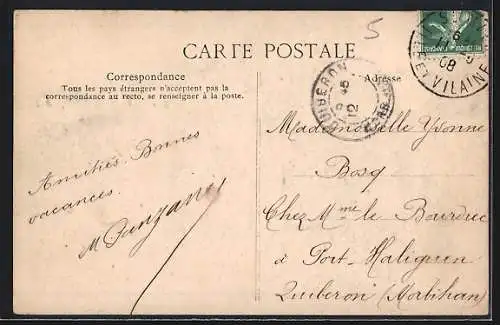 5
CARTE POSTALE
Correspondance
Tous les pays étrangers n'acceptent pas la
correspondance au recto, se renseigner à la poste.
Adresse
QUIBERON
12
08
VILAINE
Amitiés. Bonnes
vacances.
Mademoiselle Yvonne
Bosq
Chez Mme le Bourdiec
à Port-Haliguen
Quiberon (Morbihan)